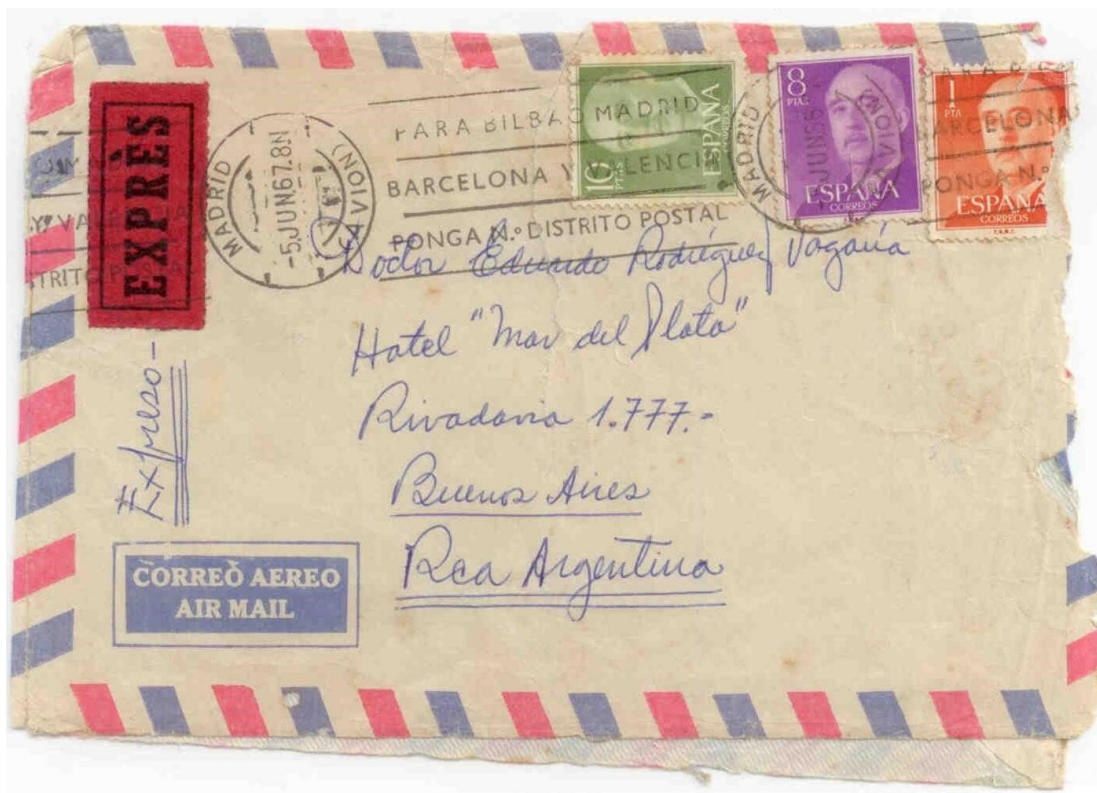 EXPRÈS
MADRID
-5.JUN.67.8N
(AVION)
PARA BILBAO MADRID
BARCELONA Y VALENCIA
PONGA N.º DISTRITO POSTAL
10 PTAS
ESPAÑA
CORREOS
8 PTAS
ESPAÑA
CORREOS
1 PTA
ESPAÑA
CORREOS
F.N.M.T.
MADRID
JUN
BARCELONA
PONGA N.º
Doctor Eduardo Rodríguez
Hotel "Mar del Plata"
Rivadavia 1.777.-
Buenos Aires
Rca Argentina
Expreso-
CORREO AEREO
AIR MAIL